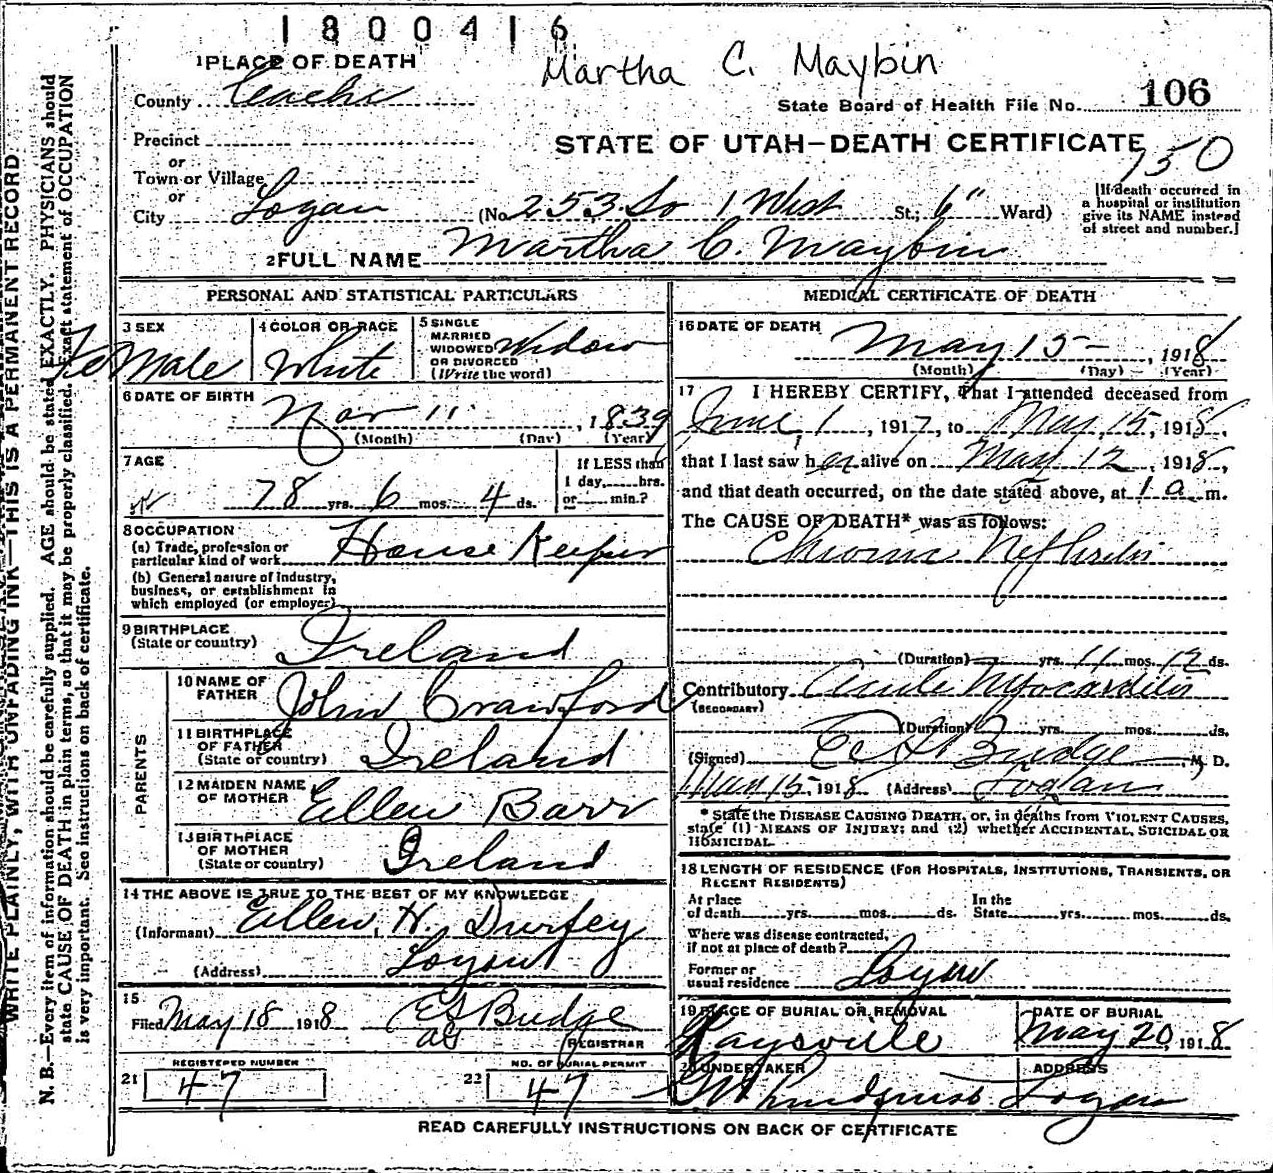 1800416
Martha C. Maybin
1 PLACE OF DEATH
County Cache
State Board of Health File No. 106
Precinct
STATE OF UTAH—DEATH CERTIFICATE
750
or
Town or Village
or
City Logan (No. 253 So 1 West St.; 6" Ward)
[If death occurred in
a hospital or institution
give its NAME instead
of street and number.]
2 FULL NAME Martha C. Maybin
PERSONAL AND STATISTICAL PARTICULARS
3 SEX Female
4 COLOR OR RACE White
5 SINGLE
MARRIED
WIDOWED
OR DIVORCED
(Write the word)
Widow
6 DATE OF BIRTH
Nov 11, 1839
(Month) (Day) (Year)
7 AGE
78 yrs. 6 mos. 4 ds.
If LESS than
1 day, hrs.
or min.?
8 OCCUPATION
(a) Trade, profession or
particular kind of work House Keeper
(b) General nature of industry,
business, or establishment in
which employed (or employer)
9 BIRTHPLACE
(State or country) Ireland
PARENTS
10 NAME OF
FATHER John Crawford
11 BIRTHPLACE
OF FATHER
(State or country) Ireland
12 MAIDEN NAME
OF MOTHER Ellen Barr
13 BIRTHPLACE
OF MOTHER
(State or country) Ireland
14 THE ABOVE IS TRUE TO THE BEST OF MY KNOWLEDGE
(Informant) Ellen H. Durfey
(Address) Logan
15
Filed May 18 1918 E S Budge
REGISTRAR
REGISTERED NUMBER
21 47
NO. OF BURIAL PERMIT
22 47
MEDICAL CERTIFICATE OF DEATH
16 DATE OF DEATH
May 15, 1918
(Month) (Day) (Year)
17 I HEREBY CERTIFY, That I attended deceased from
June 1, 1917, to May 15, 1918,
that I last saw her alive on May 12, 1918,
and that death occurred, on the date stated above, at 1 a m.
The CAUSE OF DEATH* was as follows:
Chronic Nephritis
(Duration) yrs. 11 mos. 12 ds.
Contributory Acute Myocarditis
(SECONDARY)
(Duration) yrs. mos. ds.
(Signed) Budge M. D.
May 15, 1918 (Address) Logan
* State the DISEASE CAUSING DEATH, or, in deaths from VIOLENT CAUSES,
state (1) MEANS OF INJURY; and (2) whether ACCIDENTAL, SUICIDAL OR
HOMICIDAL.
18 LENGTH OF RESIDENCE (FOR HOSPITALS, INSTITUTIONS, TRANSIENTS, OR
RECENT RESIDENTS)
At place
of death yrs. mos. ds.
In the
State yrs. mos. ds.
Where was disease contracted,
if not at place of death?
Former or
usual residence Logan
19 PLACE OF BURIAL OR REMOVAL
Kaysville
DATE OF BURIAL
May 20, 1918
20 UNDERTAKER
ADDRESS
Logan
READ CAREFULLY INSTRUCTIONS ON BACK OF CERTIFICATE
WRITE PLAINLY, WITH UNFADING INK—THIS IS A PERMANENT RECORD
N. B.—Every item of information should be carefully supplied. AGE should be stated EXACTLY. PHYSICIANS should
state CAUSE OF DEATH in plain terms, so that it may be properly classified. Exact statement of OCCUPATION
is very important. See instructions on back of certificate.